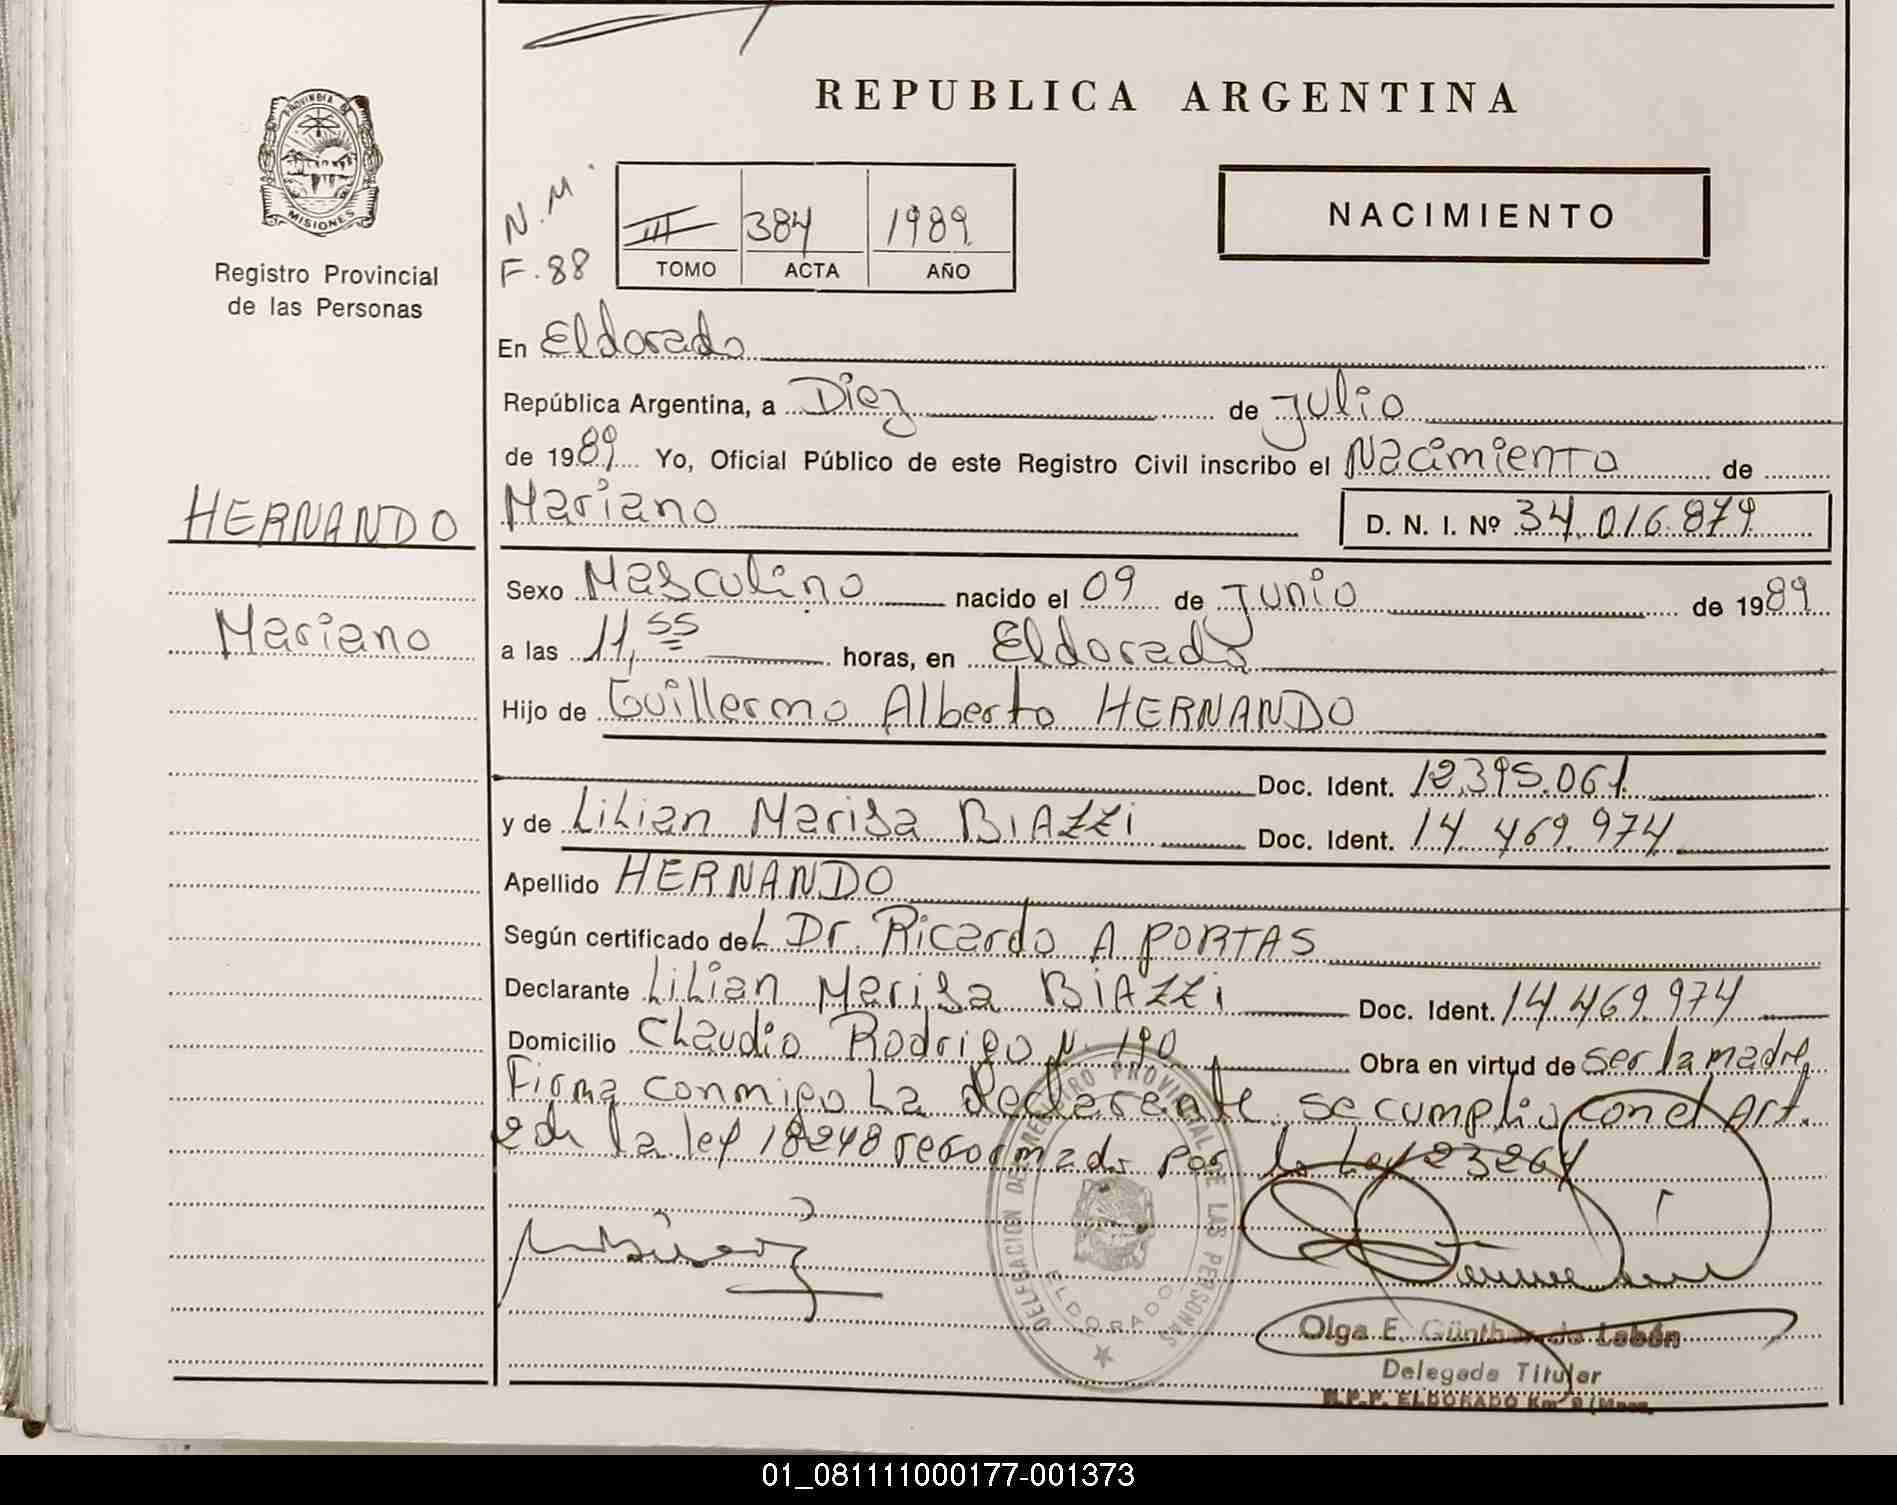 REPUBLICA ARGENTINA
PROVINCIA DE
MISIONES
Registro Provincial
de las Personas
N.M.
F.88
III 384 1989
TOMO ACTA AÑO
NACIMIENTO
En Eldorado
República Argentina, a Diez de Julio
de 1989 Yo, Oficial Público de este Registro Civil inscribo el Nacimiento de
HERNANDO
Mariano D. N. I. Nº 34.016.879
Sexo Masculino nacido el 09 de Junio de 1989
Mariano
a las 11,55 horas, en Eldorado
Hijo de Guillermo Alberto HERNANDO
Doc. Ident. 12.395.061
y de Lilian Marisa BIAZZI Doc. Ident. 14.469.974
Apellido HERNANDO
Según certificado del Dr. Ricardo A PORTAS
Declarante Lilian Marisa BIAZZI Doc. Ident. 14.469.974
Domicilio Claudio Rodrigo Nº 190 Obra en virtud de ser la madre
Firma conmigo La declarante. se cumplio con el Art.
2 de la ley 18248 reformado por la Ley 23264
DELEGACION DE REGISTRO PROVINCIAL DE LAS PERSONAS
ELDORADO
Olga E. Günther de Labán
Delegada Titular
R.P.P. ELDORADO Km 9 (Mnes.
01_081111000177-001373